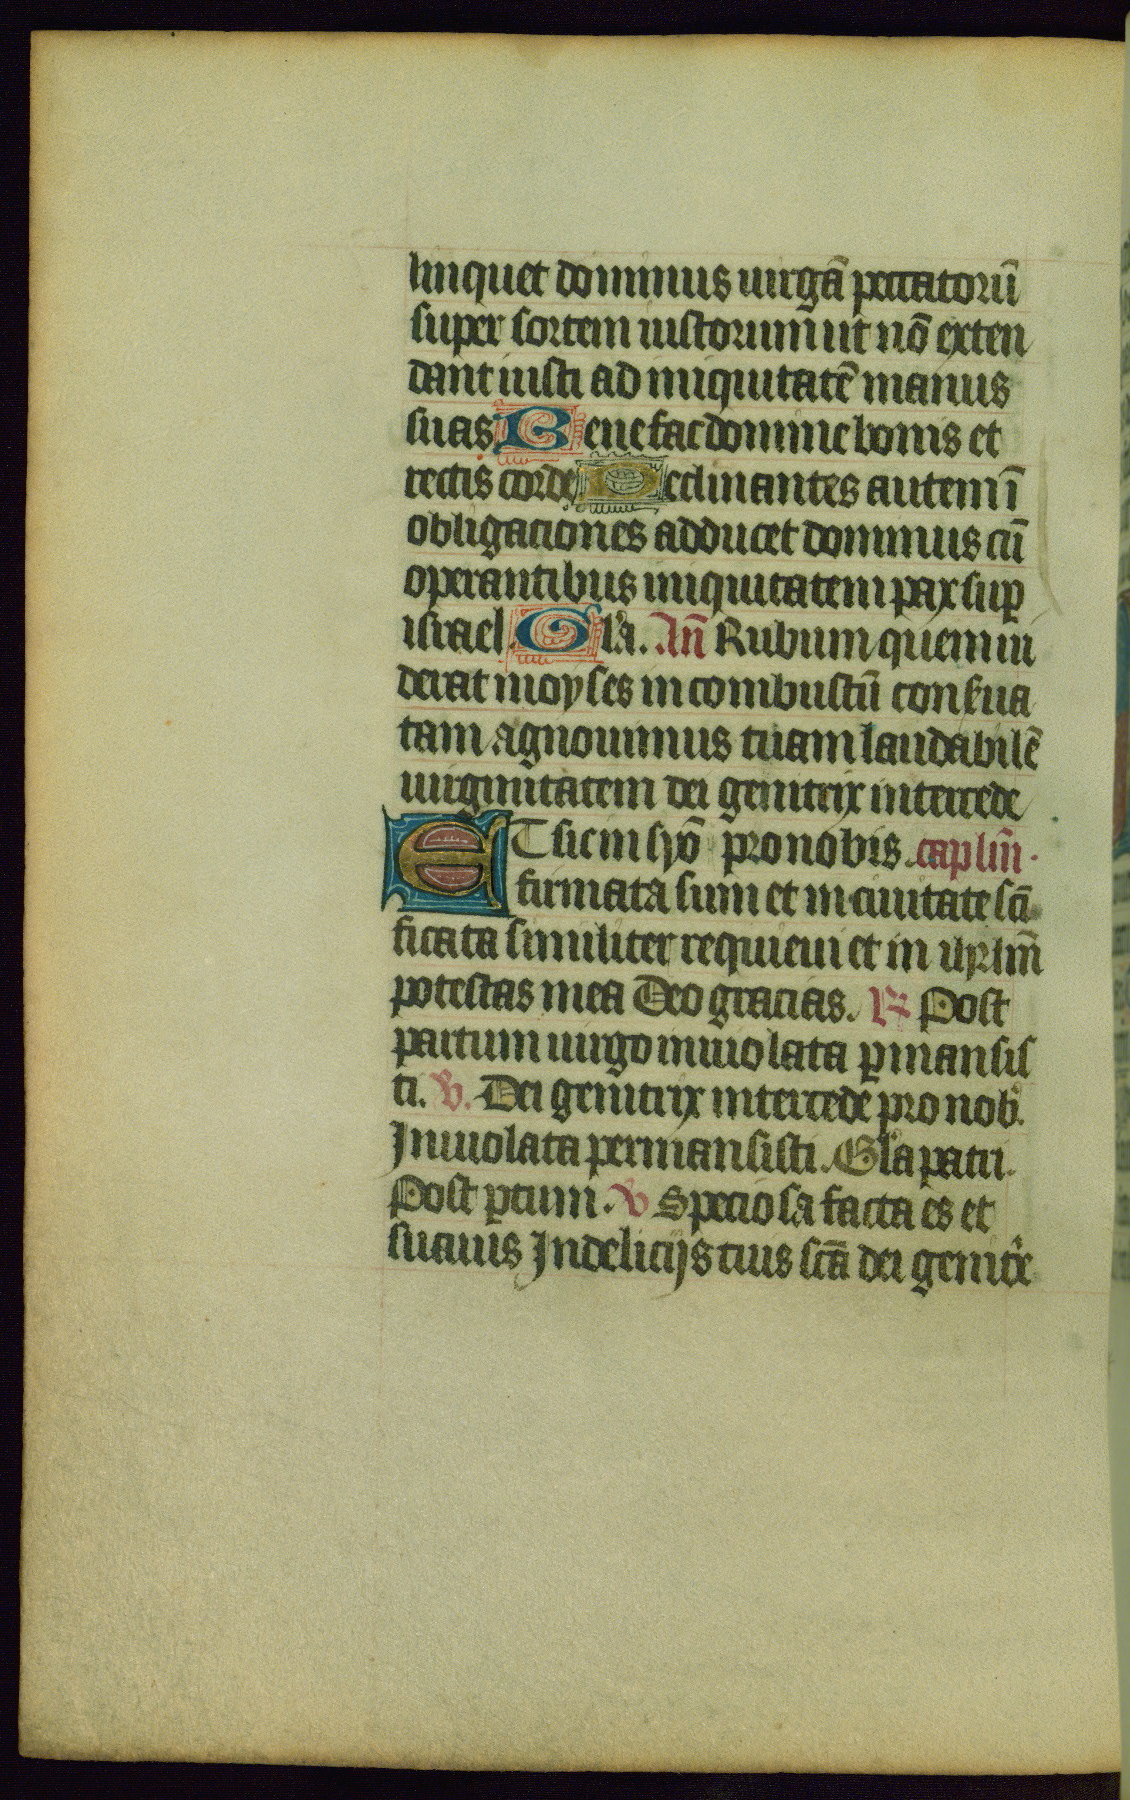 linquet dominus uirgā peccatorū
super sortem iustorum ut nō exten
dant iusti ad iniquitatē manus
suas Bene fac domine bonis et
rectis corde Declinantes autem ī
obligaciones adducet dominus cū
operantibus iniquitatem pax suꝑ
israel. Gl'a. Añ Rubum quem ui
derat moyses incombustū conẜua
tam agnouimus tuam laudabilē
uirginitatem dei genitrix intercede
ET sic in syō pro nobis. caplm̄.
firmata sum et in ciuitate scī
ficata similiter requieui et in ihrlm̄
potestas mea Deo gracias. ℟ Post
partum uirgo inuiolata ꝑmansis
ti. ℣. Dei genitrix intercede pro nob'.
Inuiolata permansisti. Gl'a patri.
Post ꝑtum. ℣ Speciosa facta es et
suauis In delicijs tuis scā dei genit'x